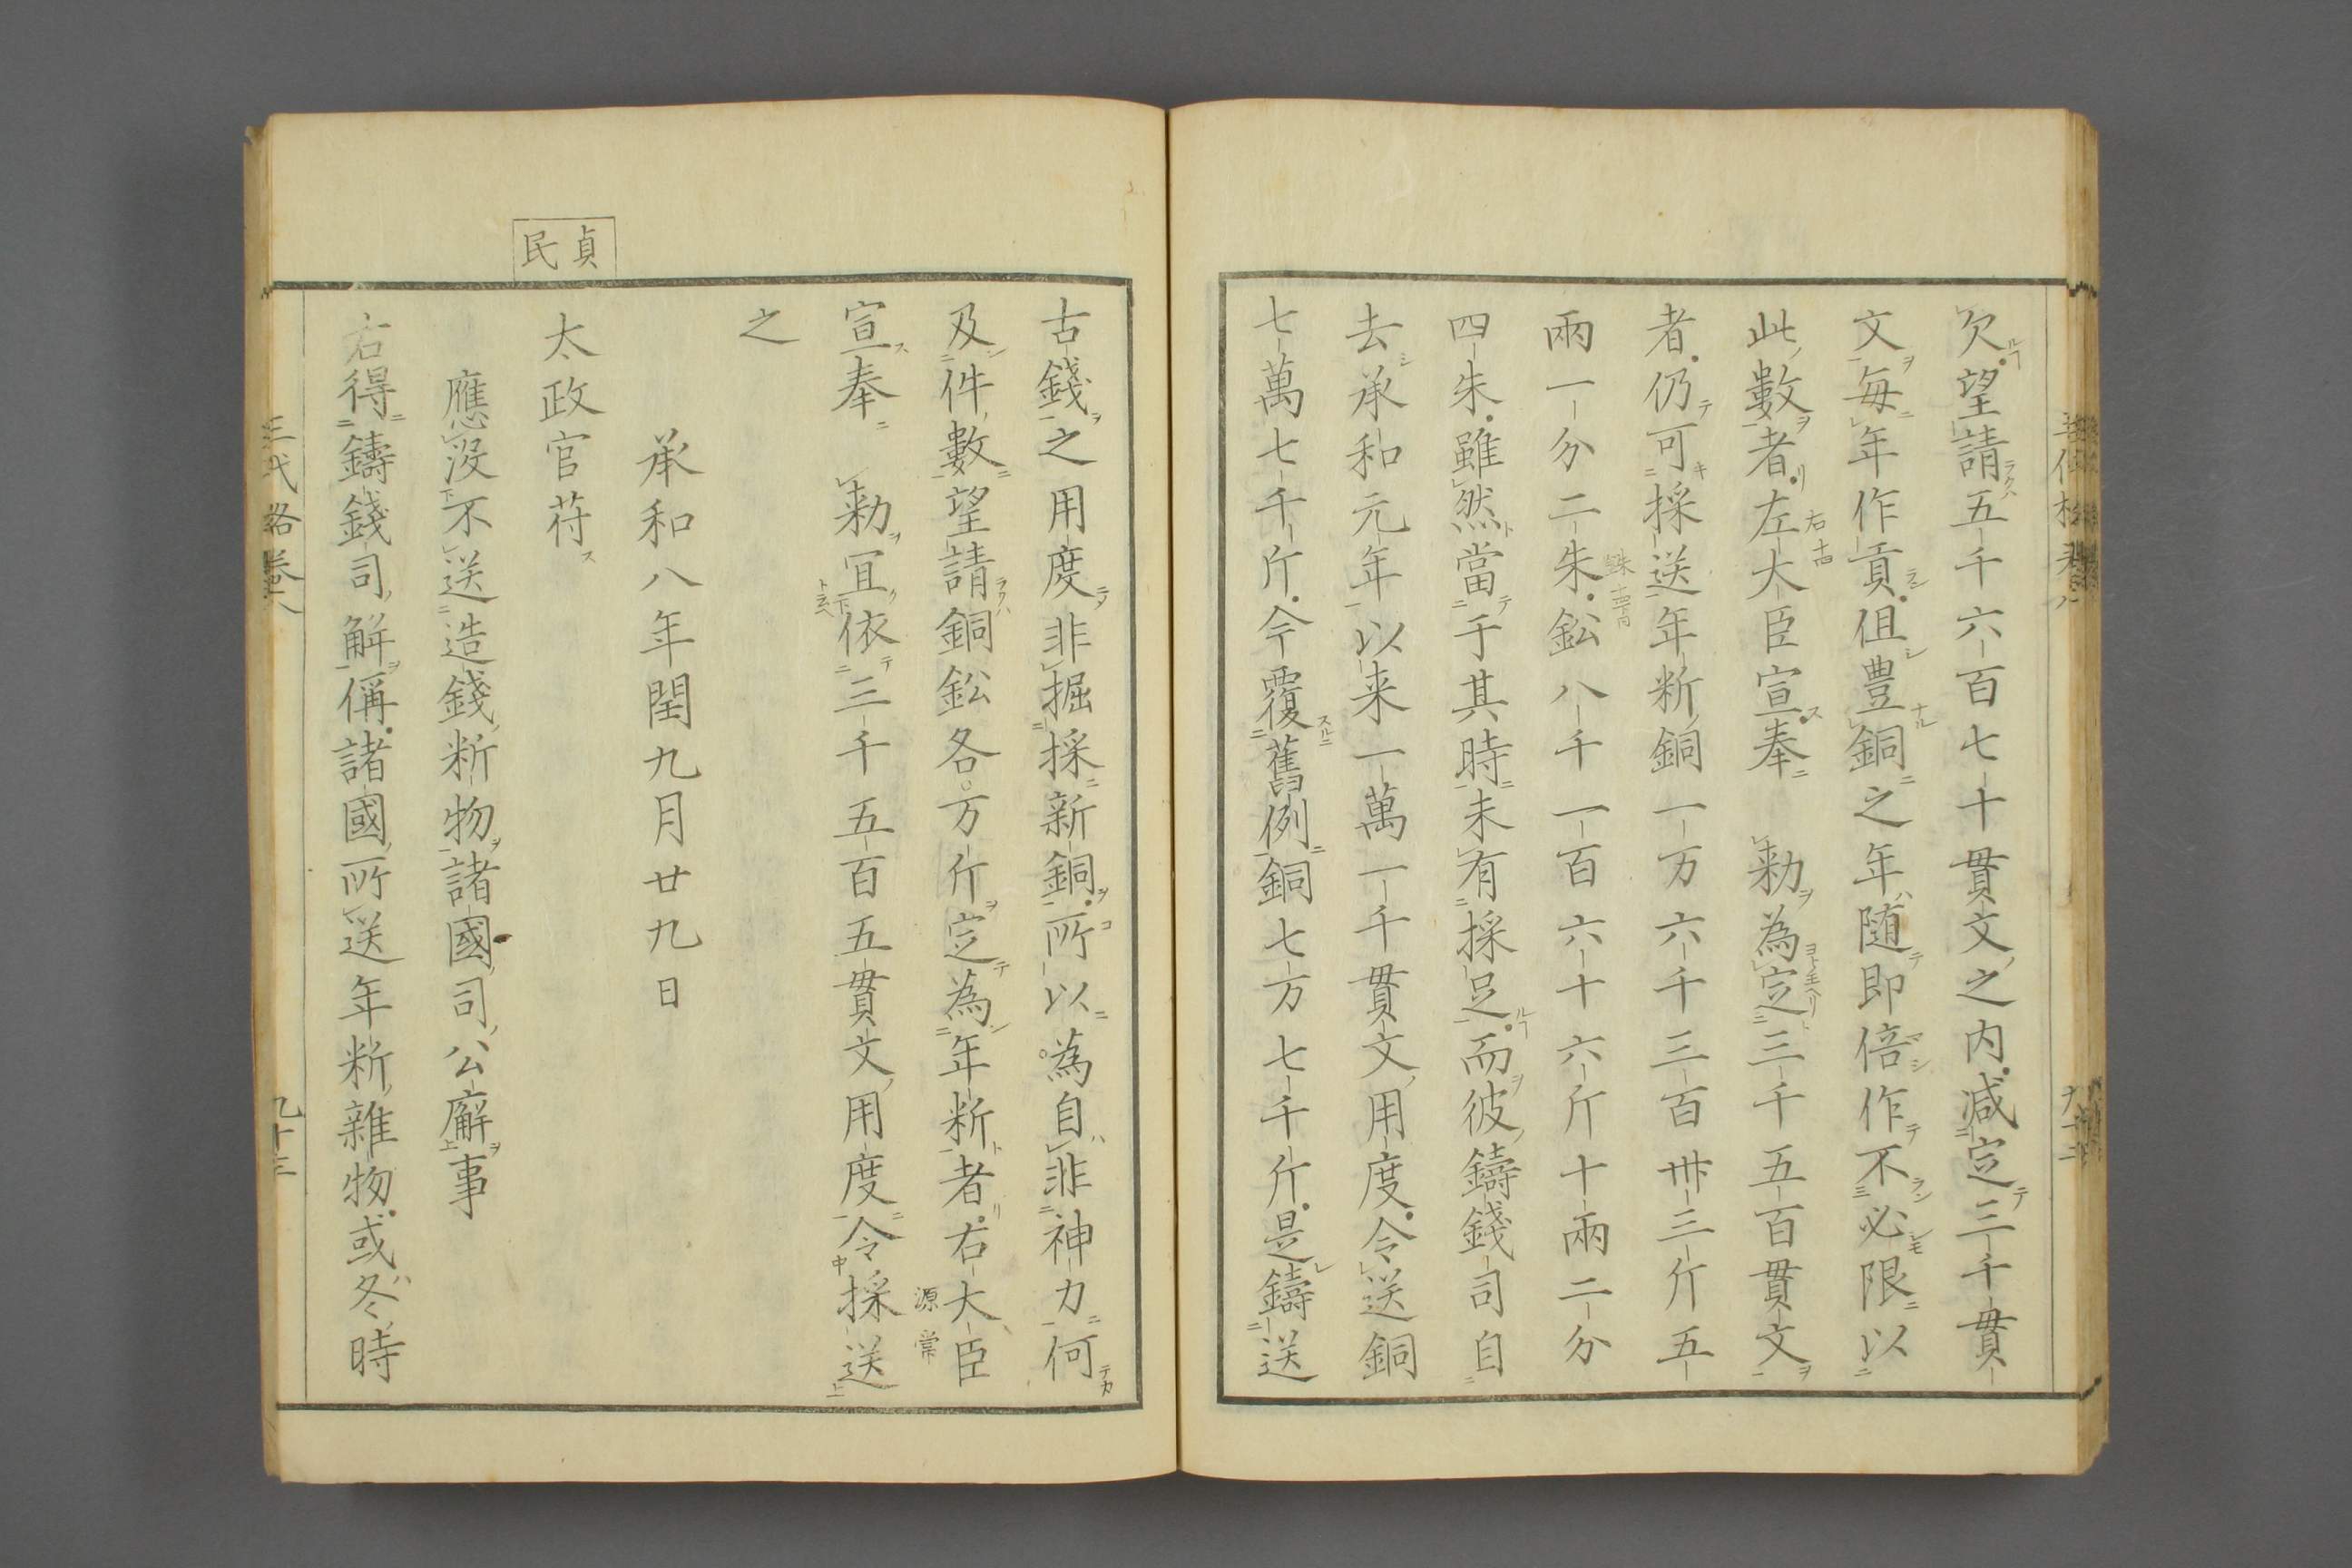 欠望請五千六百七十貫文之内減定三千貫
文毎年作貢但豊銅之年随即倍作不必限以
此數者左大臣宣奉　勅為定三千五百貫文
者仍可採送年断銅一万六千三百卅三斤五
兩一分二朱鈆八千一百六十六斤十兩二分
四朱雖然當于其時未有採足而彼鑄錢司自
去承和元年以来一萬一千貫文用度令送銅
七萬七千斤今覆舊例銅七万七千斤是鑄送
古錢之用度非掘採新銅所以為自非神力何
及件數望請銅鈆各万斤定為年断者右大臣
源常
宣奉　勅冝依三千五百五貫文用度令採送
之
承和八年閏九月廿九日
貞民
太政官苻
應没不送造錢断物諸國司公廨事
右得鑄錢司解偁諸國所送年断雜物或冬時